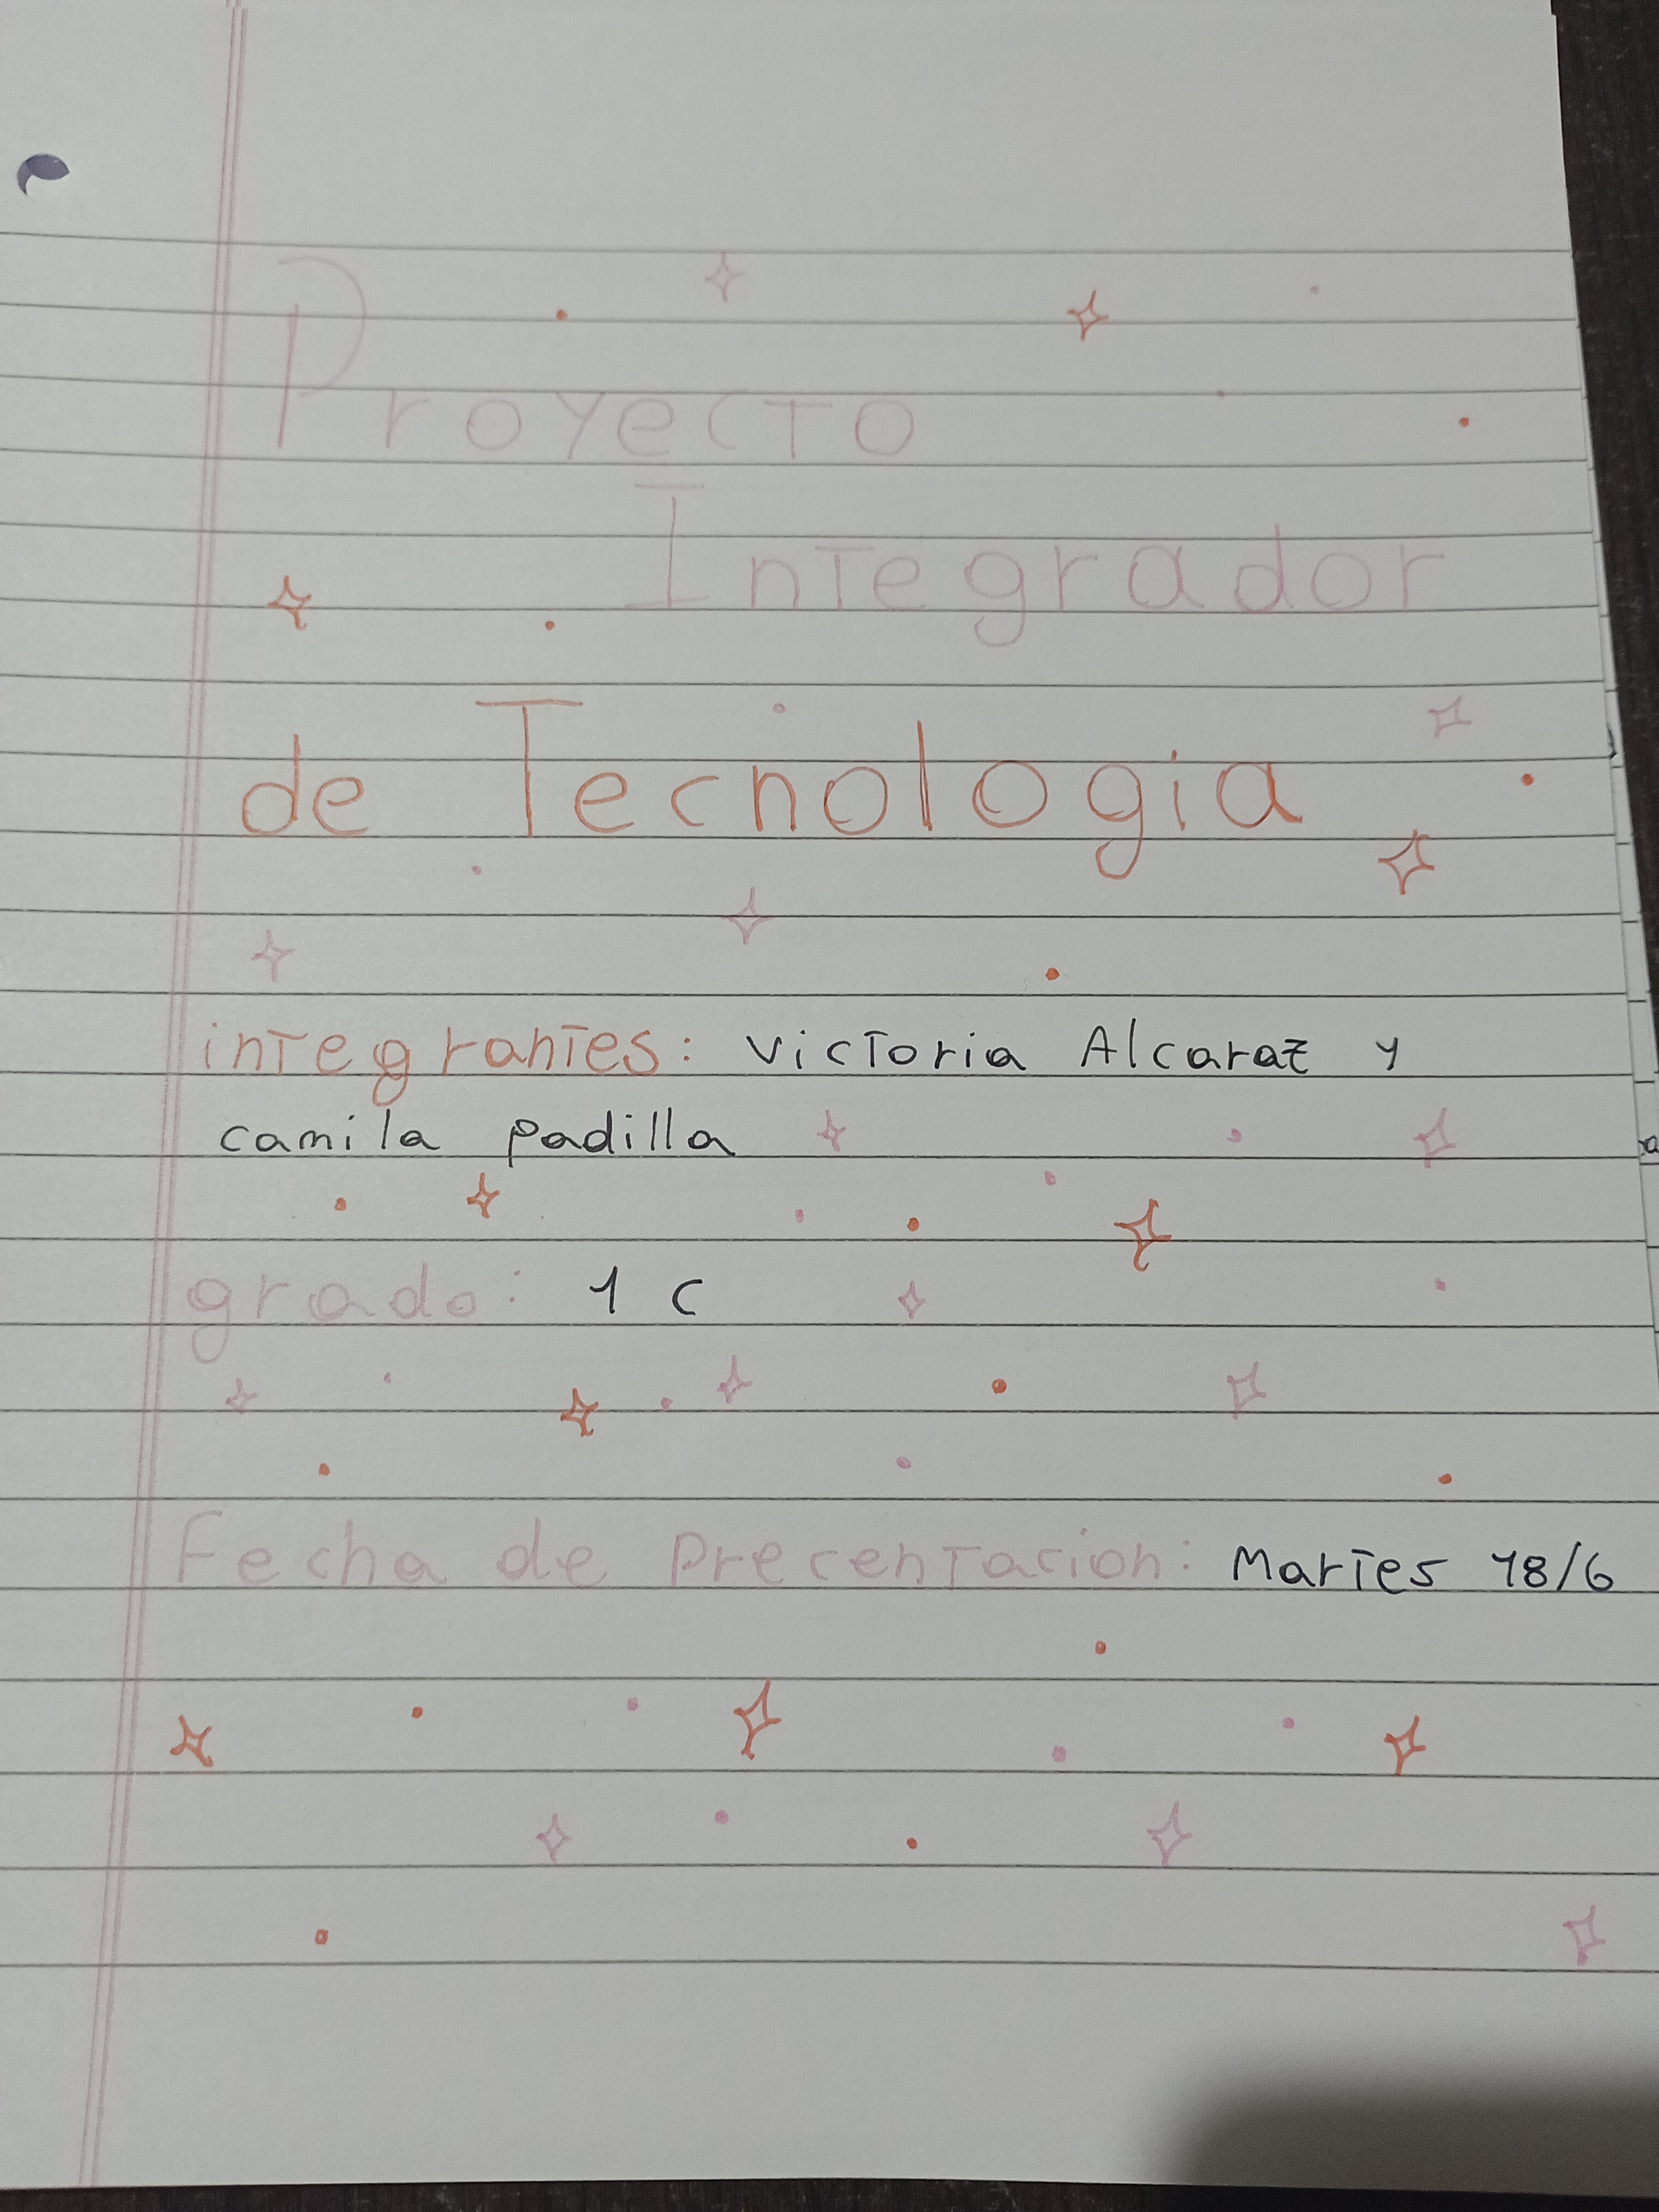 Proyecto
Integrador
de Tecnologia
integrantes: victoria Alcaraz y
camila padilla
grado: 1 c
Fecha de precentacion: Martes 18/6